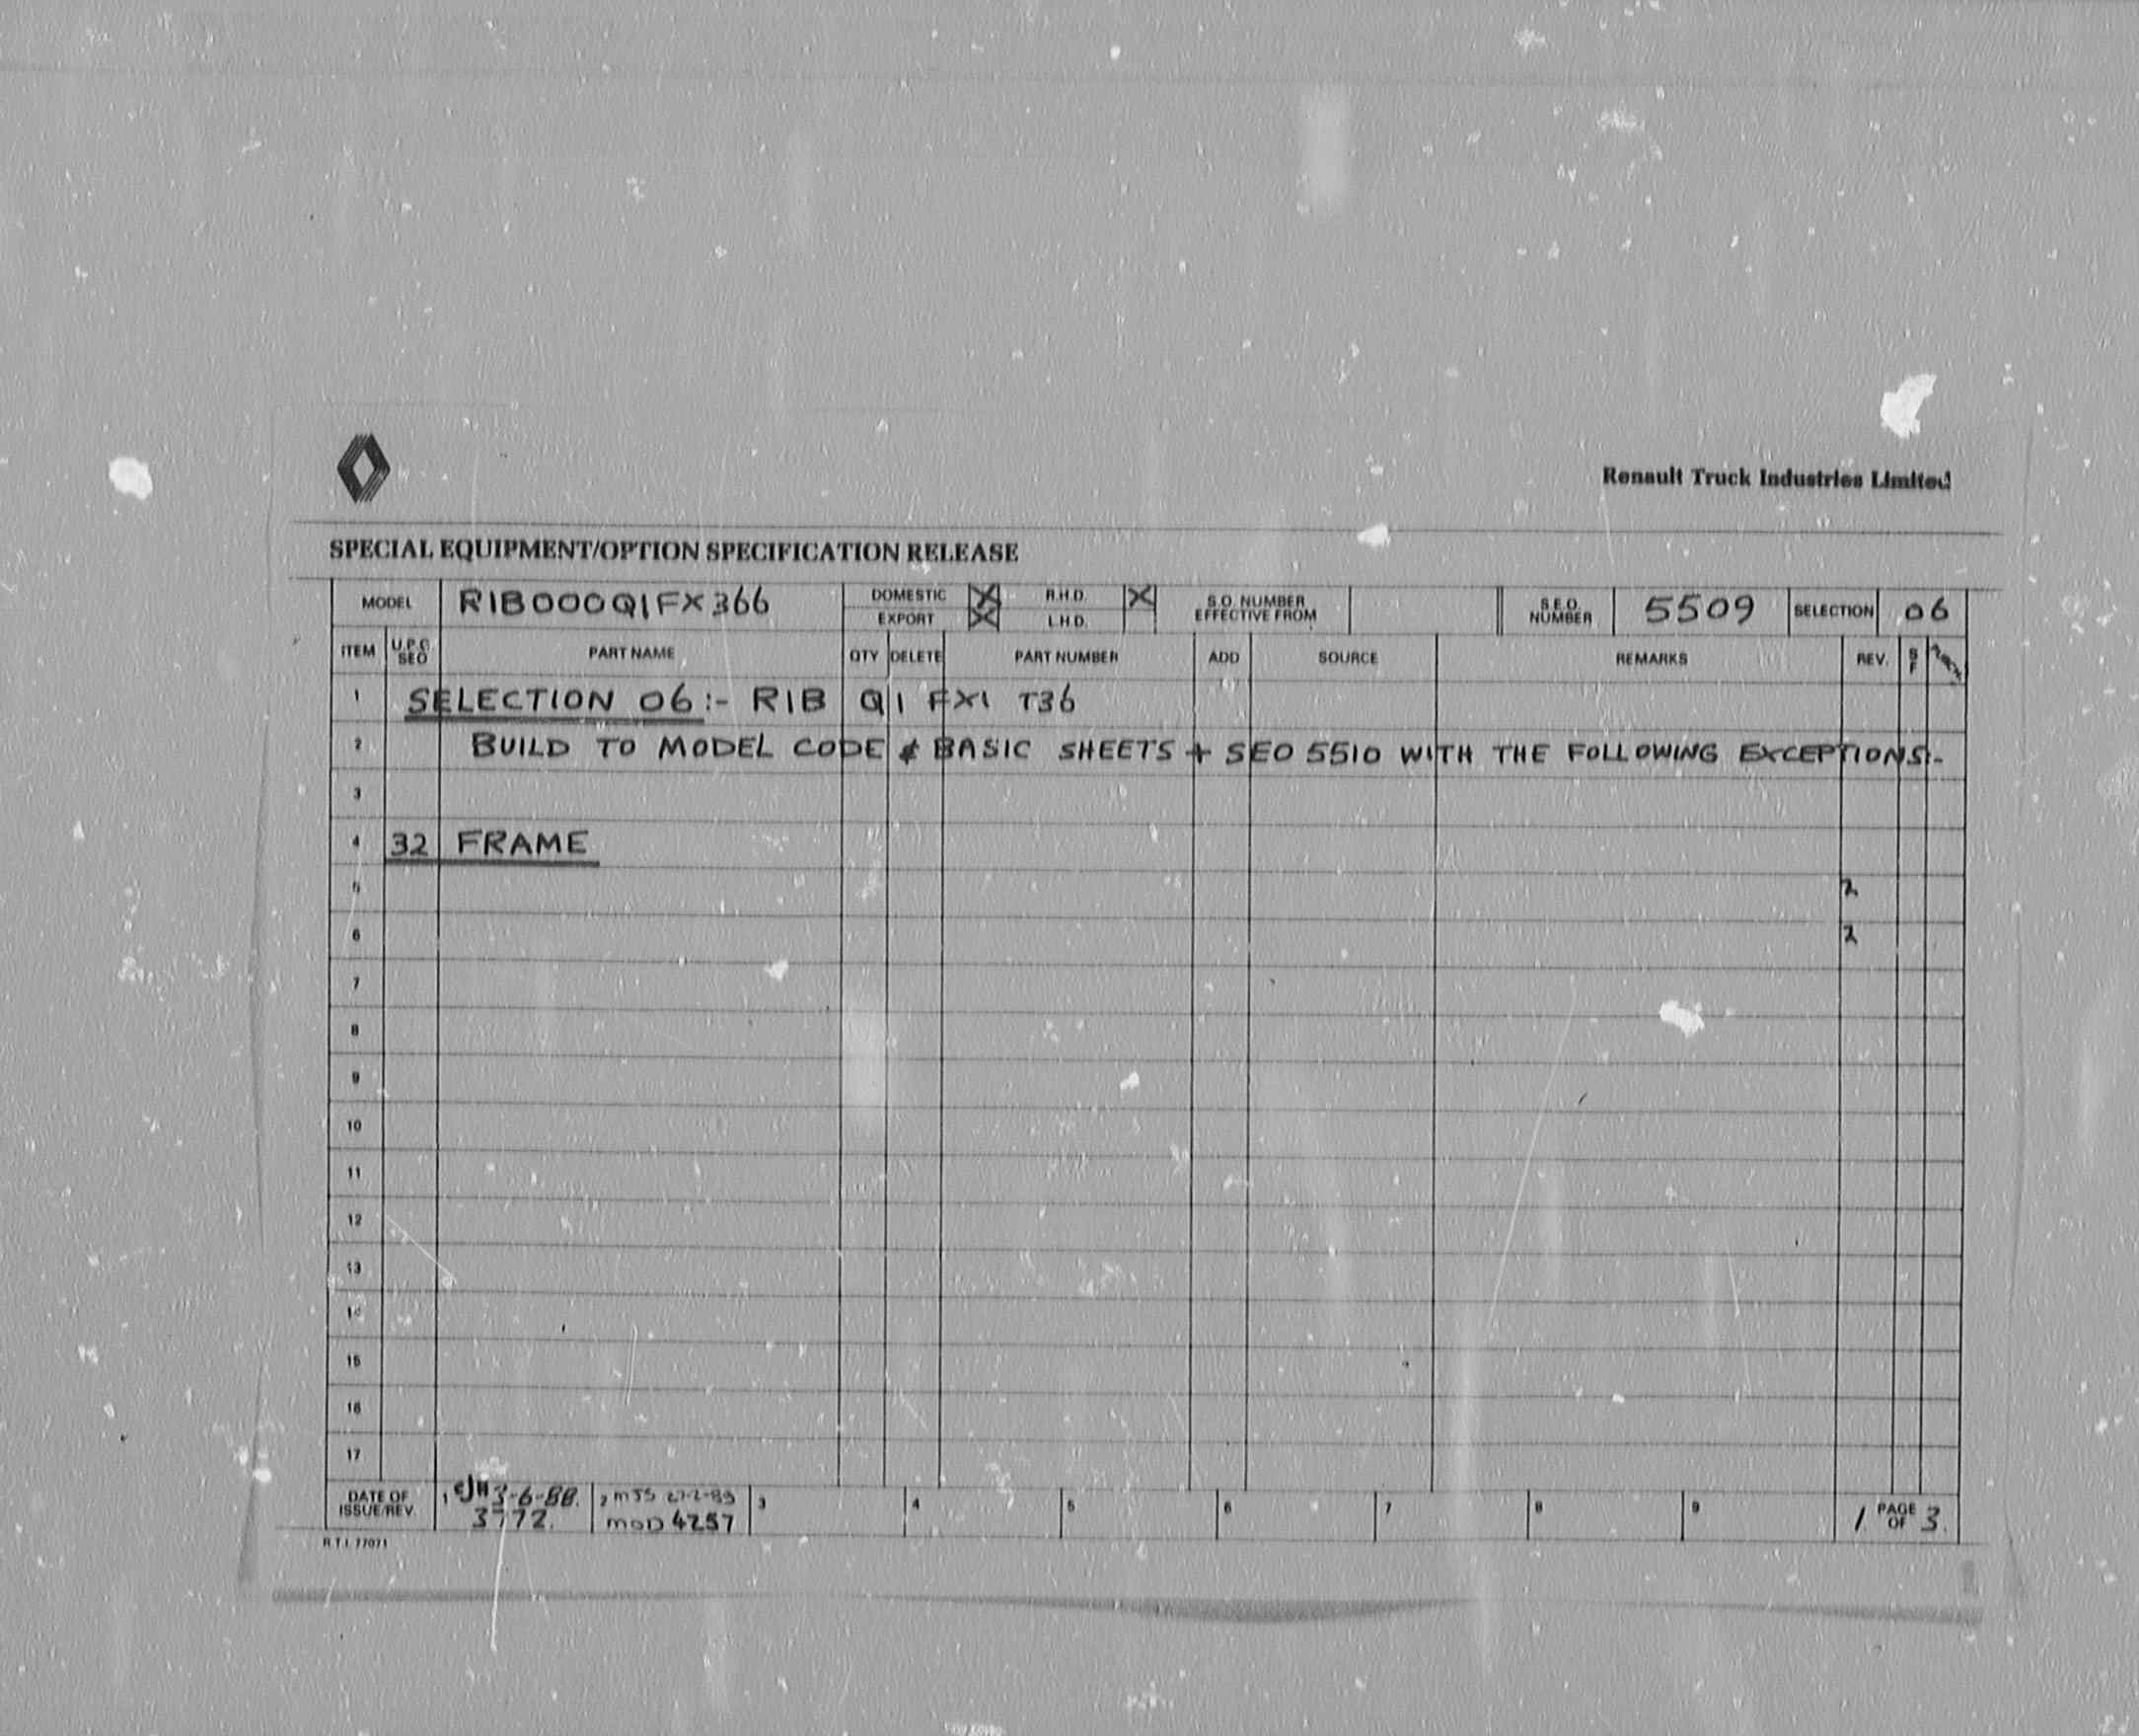 Renault Truck Industries Limited
SPECIAL EQUIPMENT/OPTION SPECIFICATION RELEASE
MODEL R1B000Q1FX366 DOMESTIC X R.H.D. X S.O. NUMBER EFFECTIVE FROM S.E.O. NUMBER 5509 SELECTION 06
EXPORT X L.H.D.
ITEM U.P.C. SEO PART NAME QTY DELETE PART NUMBER ADD SOURCE REMARKS REV. S F
1 SELECTION 06:- R1B Q1 FX1 T36
2 BUILD TO MODEL CODE & BASIC SHEETS + SEO 5510 WITH THE FOLLOWING EXCEPTIONS:-
3
4 32 FRAME
5 2
6 2
7
8
9
10
11
12
13
14
15
16
17
DATE OF ISSUE/REV. 1 3-6-88. 2 MJS 3 4 5 6 7 8 9 1 PAGE OF 3.
3772. MOD 4257
R.T.I. 77071